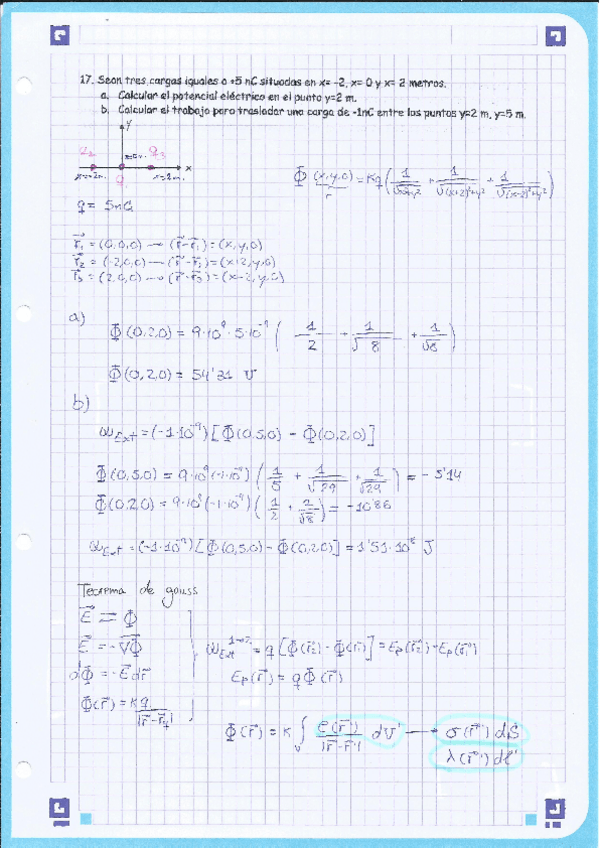 17. Sean tres cargas iguales a +5 nC situadas en x= -2, x= 0 y x= 2 metros.
a. Calcular el potencial eléctrico en el punto y=2 m.
b. Calcular el trabajo para trasladar una carga de -1nC entre los puntos y=2 m, y=5 m.
y
q₂ q₃
x=0m.
x=-2m. q x=2m. x
Φ(x,y,0) = Kq( 1/√x²+y² + 1/√(x+2)²+y² + 1/√(x-2)²+y² )
r
q = 5nC
r⃗₁ = (0,0,0) → (r⃗-r⃗₁) = (x,y,0)
r⃗₂ = (-2,0,0) → (r⃗-r⃗₂) = (x+2,y,0)
r⃗₃ = (2,0,0) → (r⃗-r⃗₃) = (x-2,y,0)
a)
Φ(0,2,0) = 9·10⁹·5·10⁻⁹ ( 1/2 + 1/√8 + 1/√8 )
Φ(0,2,0) = 54'31 V
b)
ωExt = (-1·10⁻⁹) [Φ(0,5,0) - Φ(0,2,0)]
Φ(0,5,0) = 9·10⁹(-1·10⁻⁹) ( 1/5 + 1/√29 + 1/√29 ) = -5'14
Φ(0,2,0) = 9·10⁹(-1·10⁻⁹) ( 1/2 + 2/√8 ) = -10'86
ωExt = (-1·10⁻⁹) [Φ(0,5,0) - Φ(0,2,0)] = 1'51·10⁻⁸ J
Teorema de gauss
E⃗ = Φ
E⃗ = -∇Φ
dΦ = -E⃗dr⃗
Φ(r⃗) = Kq/|r⃗-r⃗q|
ωExt = q[Φ(r⃗₂) - Φ(r⃗₁)] = Ep(r⃗₂) - Ep(r⃗₁)
Ep(r⃗) = qΦ(r⃗)
Φ(r⃗) = K ∫v ρ(r⃗')/|r⃗-r⃗'| dV' → σ(r⃗')dS
λ(r⃗')dl'